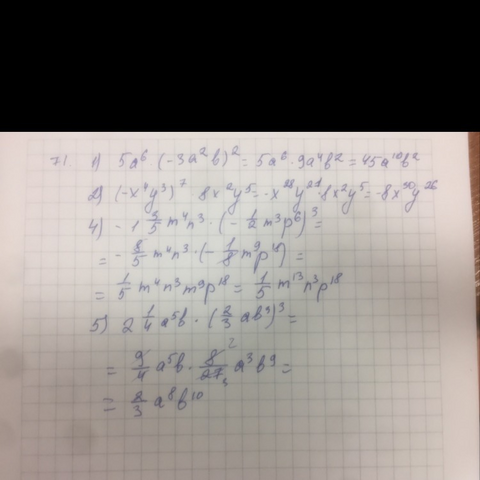 71 1) 5a⁶ · (-3a²b)² = 5a⁶ · 9a⁴b² = 45a¹⁰b²
2) (-x⁴y³)⁷ 8x²y⁵ = -x²⁸y²¹ · 8x²y⁵ = -8x³⁰y²⁶
4) -1 3/5 m⁴n³ · (-1/2 m³p⁶)³ =
= -8/5 m⁴n³ · (-1/8 m⁹p¹⁸) =
= 1/5 m⁴n³m⁹p¹⁸ = 1/5 m¹³n³p¹⁸
5) 2 1/4 a⁵b · (2/3 ab³)³ =
= 9/4 a⁵b · 8/27 a³b⁹ =
= 2/3 a⁸b¹⁰